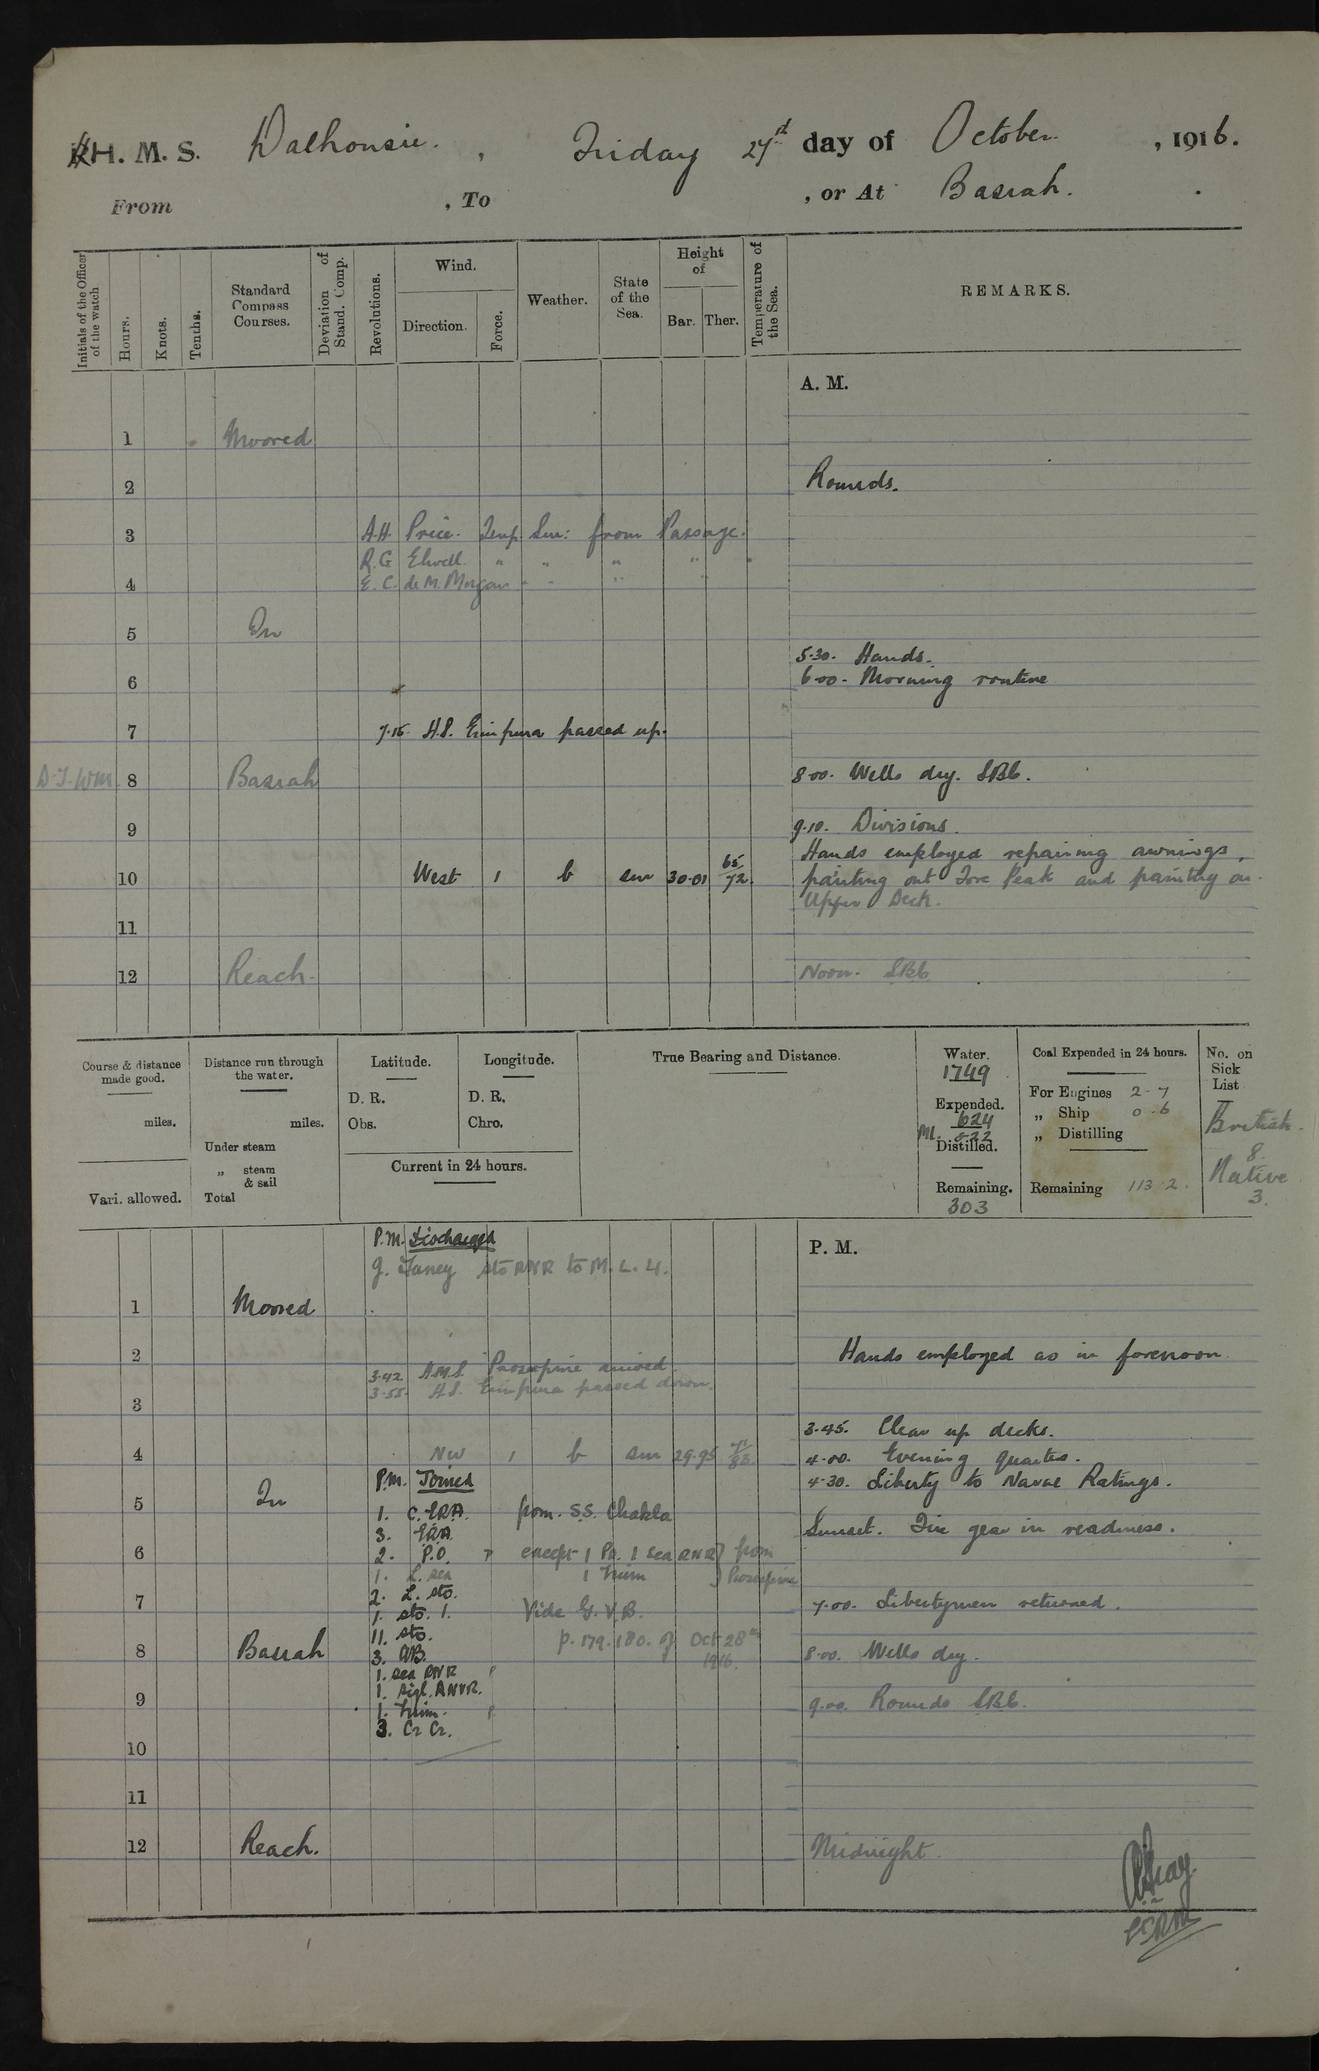 H. M. S. Dalhousie. , Friday 27st day of October. , 1916.
From , To , or At Basrah. .
Initials of the Officer of the watch
Hours.
Knots.
Tenths.
Standard Compass Courses.
Deviation of Stand. Comp.
Revolutions.
Wind.
Direction.
Force.
Weather.
State of the Sea.
Height of
Bar. Ther.
Temperature of the Sea.
REMARKS.
A. M.
1 Moored
2 Rounds.
3 A.H. Price. Temp Sur: from Passage.
R.G. Elwell. " " " " "
4 E. C. de M. Morgan " " " "
5 In
5.30. Hands.
6 6.00. Morning routine
7 7.15 H.S. Erinpura passed up.
8 Basrah 8.00. Wells dry. SBb.
9 9.10. Divisions.
Hands employed repairing awnings,
10 West 1 b sm 30.01 65/72 painting out Fore Peak and painting on
Upper Deck.
11
12 Reach. Noon. SBb
Course & distance made good.
miles.
Vari. allowed.
Distance run through the water.
miles.
Under steam
„ steam & sail
Total
Latitude.
D. R.
Obs.
Longitude.
D. R.
Chro.
Current in 24 hours.
True Bearing and Distance.
Water.
1749
Expended.
624
ML. 822
Distilled.
Remaining.
303
Coal Expended in 24 hours.
For Engines 2-7
„ Ship 0.6
„ Distilling
Remaining 113.2.
No. on Sick List
British.
8.
Native
3.
P.M. Discharged
P. M.
J. Taney sto RNR to M.L. 4.
1 Moored
2 Hands employed as in forenoon.
3.42 H.M.S. Proserpine arrived.
3.55. H.S. Erinpura passed down.
3
3.45. Clear up decks.
4 NW 1 b sm 29.95 4.00. Evening quarters.
P.M. Joined 4.30. Liberty to Naval Ratings.
5 In
1. C.ERA. from S.S. Chakla
3. ERA. Sunset. Fire gear in readiness.
6 2. P.O. except 1 Po. 1 Sea RNR } from
1. L. sea 1 Trim } Proserpine
2. L. sto.
7 1. sto. 1. Vide G.V.B. 7.00. Libertymen returned.
11. sto. p. 179. 180. of Oct 28th
8 Basrah 3. AB. 1916. 8.00. Wells dry.
1. sea RNR
1. sigl. RNVR.
9 1. Trim. 9.00. Rounds SBb.
3. Cr Cr.
10
11
12 Reach. Midnight.